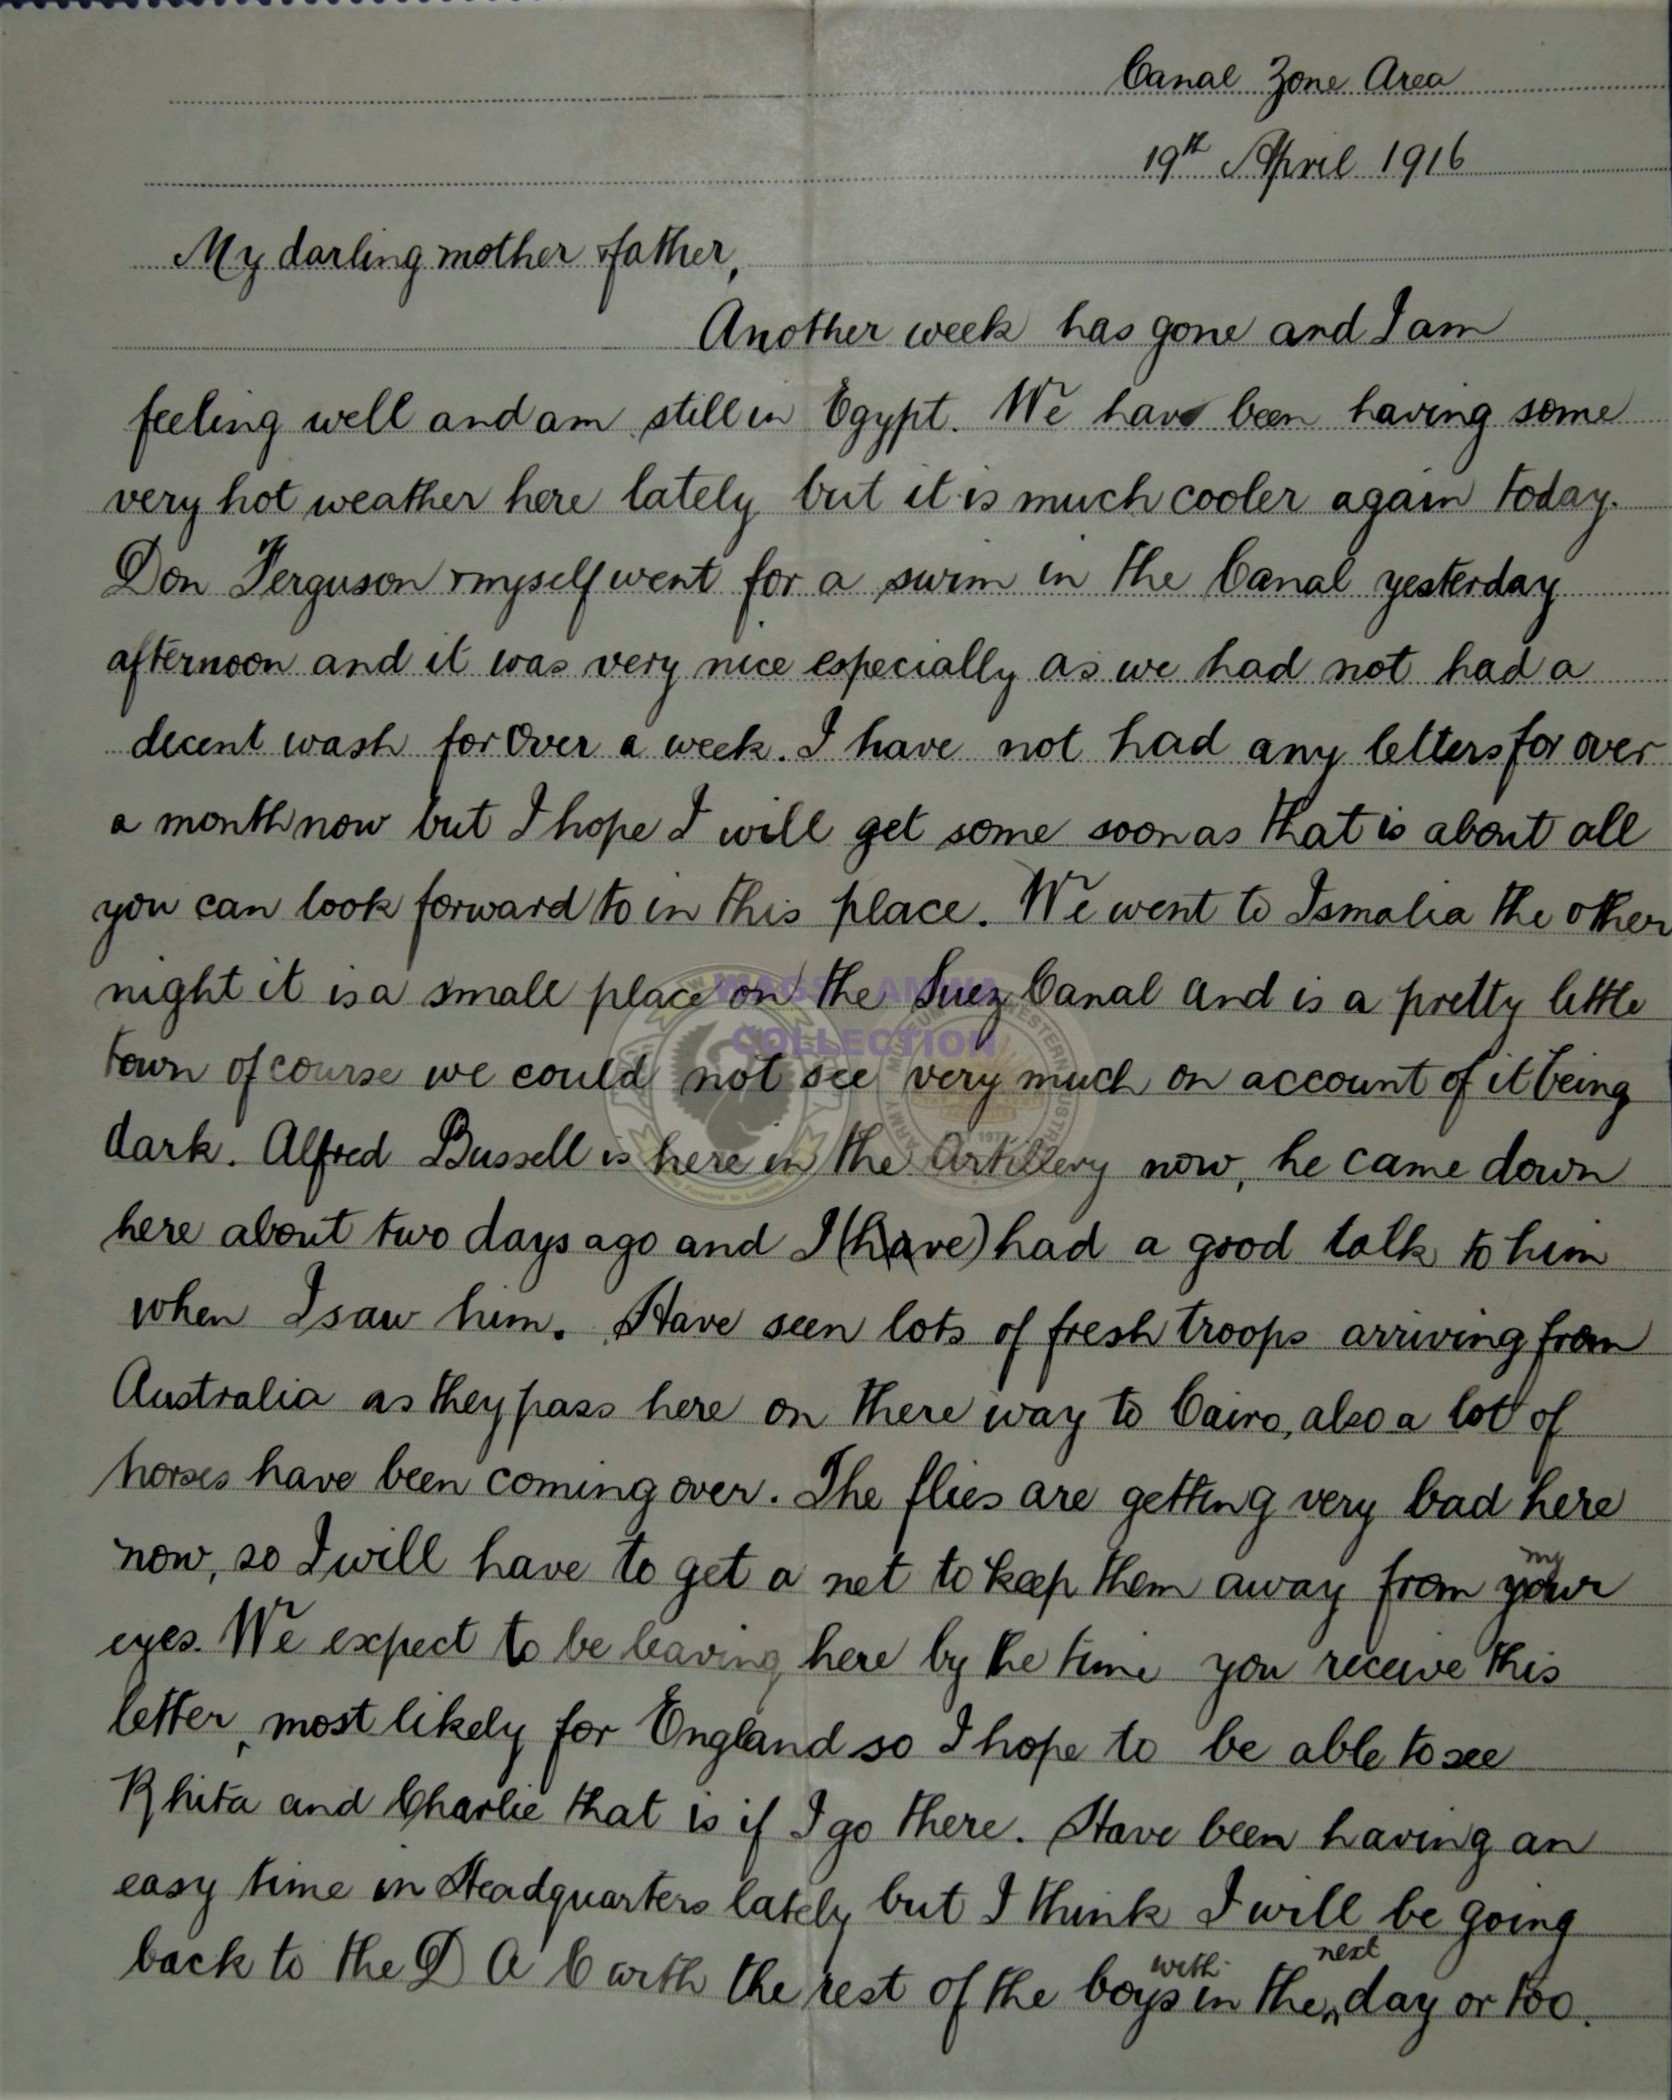 Canal Zone Area
19th April 1916
My darling mother & father,
Another week has gone and I am
feeling well and am still in Egypt. We have been having some
very hot weather here lately but it is much cooler again today.
Don Ferguson & myself went for a swim in the Canal yesterday
afternoon and it was very nice especially as we had not had a
decent wash for over a week. I have not had any letters for over
a month now but I hope I will get some soon as that is about all
you can look forward to in this place. We went to Ismalia the other
night it is a small place on the Suez Canal and is a pretty little
town of course we could not see very much on account of it being
dark. Alfred Bussell is here in the Artillery now, he came down
here about two days ago and I (have) had a good talk to him
when I saw him. Have seen lots of fresh troops arriving from
Australia as they pass here on there way to Cairo, also a lot of
horses have been coming over. The flies are getting very bad here
now, so I will have to get a net to keep them away from your my
eyes. We expect to be leaving here by the time you receive this
letter, most likely for England so I hope to be able to see
Rhita and Charlie that is if I go there. Have been having an
easy time in Headquarters lately but I think I will be going
back to the D A C with the rest of the boys with in the next day or too.
COLLECTION